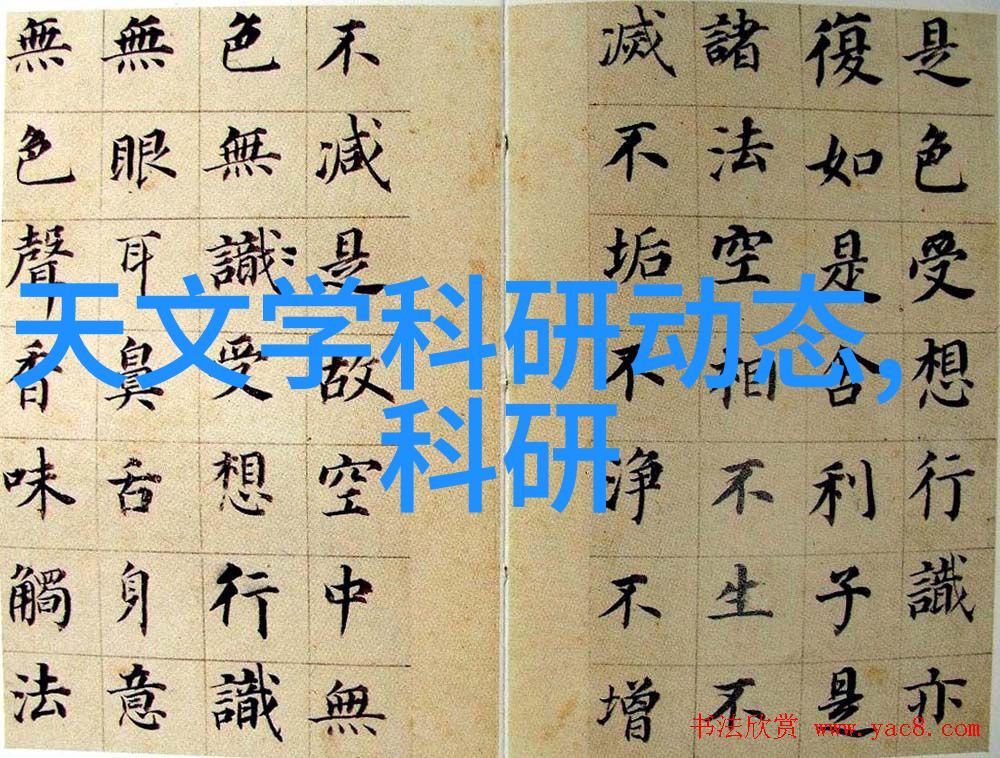 是色受想行識亦
復如是舍利子是
諸法空相不生不
滅不垢不淨不增
不減是故空中無
色無識受想行識
無眼耳鼻舌身意
無色聲香味觸法
天文学科研动态,
科研
书法欣赏 www.yac8.com